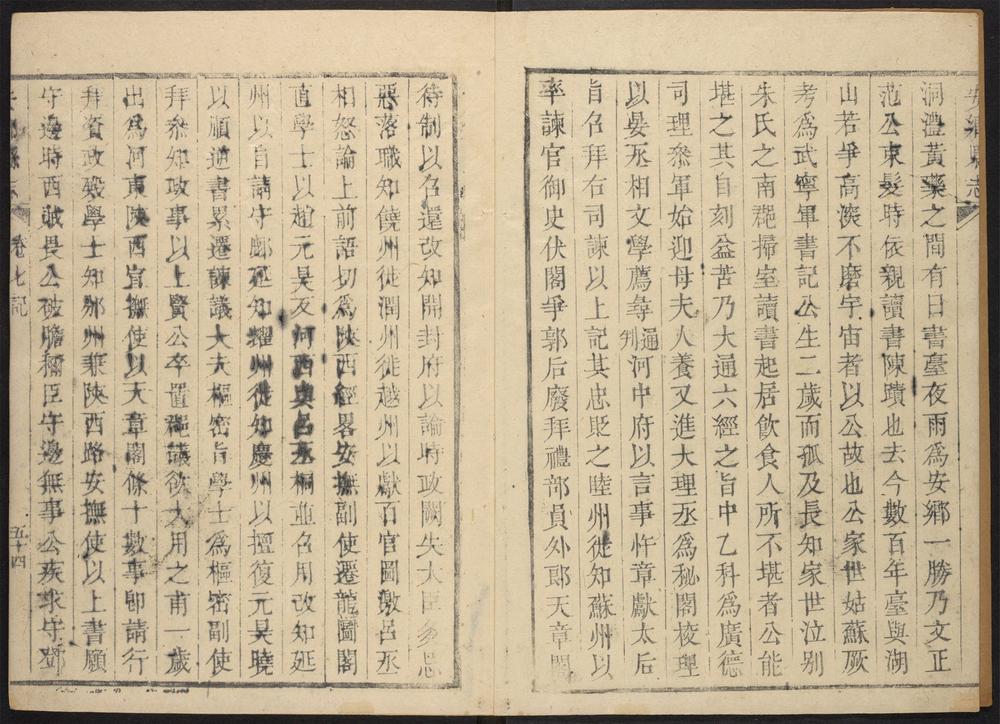 安鄉縣志
洞澧黃藥之間有日書臺夜雨爲安鄉一勝乃文正
范公束髮時依親讀書陳蹟也去今數百年臺與湖
山若爭高深不磨宇宙者以公故也公家世姑蘇厥
考爲武寧軍書記公生二歲而孤及長知家世泣别
朱氏之南雝掃室讀書起居飲食人所不堪者公能
堪之其自刻益苦乃大通六經之旨中乙科爲廣德
司理叅軍始迎母夫人養又進大理丞爲秘閣校理
以晏丞相文學薦尋通判河中府以言事忤章獻太后
旨召拜右司諫以上記其忠貶之睦州徙知蘇州以
率諫官御史伏閤爭郭后廢拜禮部員外郎天章閣
待制以召還改知開封府以論時政闕失大臣忌
惡落職知饒州徙潤州徙越州以獻百官圖激呂丞
相怒論上前語切爲陜西經畧安撫副使遷龍圖閣
直學士以趙元昊反河西與呂丞相並召用改知延
州以自請守鄜延知耀州徙知慶州以擅復元昊曉
以順逆書累遷諫議大夫樞密旨學士爲樞密副使
拜叅知政事以上賢公卒置雝議欲大用之甫一歲
出爲河東陜西宣撫使以天章閣條十數事卽請行
拜資政殿學士知邠州兼陜西路安撫使以上書願
守邊時西戎畏公破膽稱臣守邊無事公疾求守鄧
卷七記
五十四